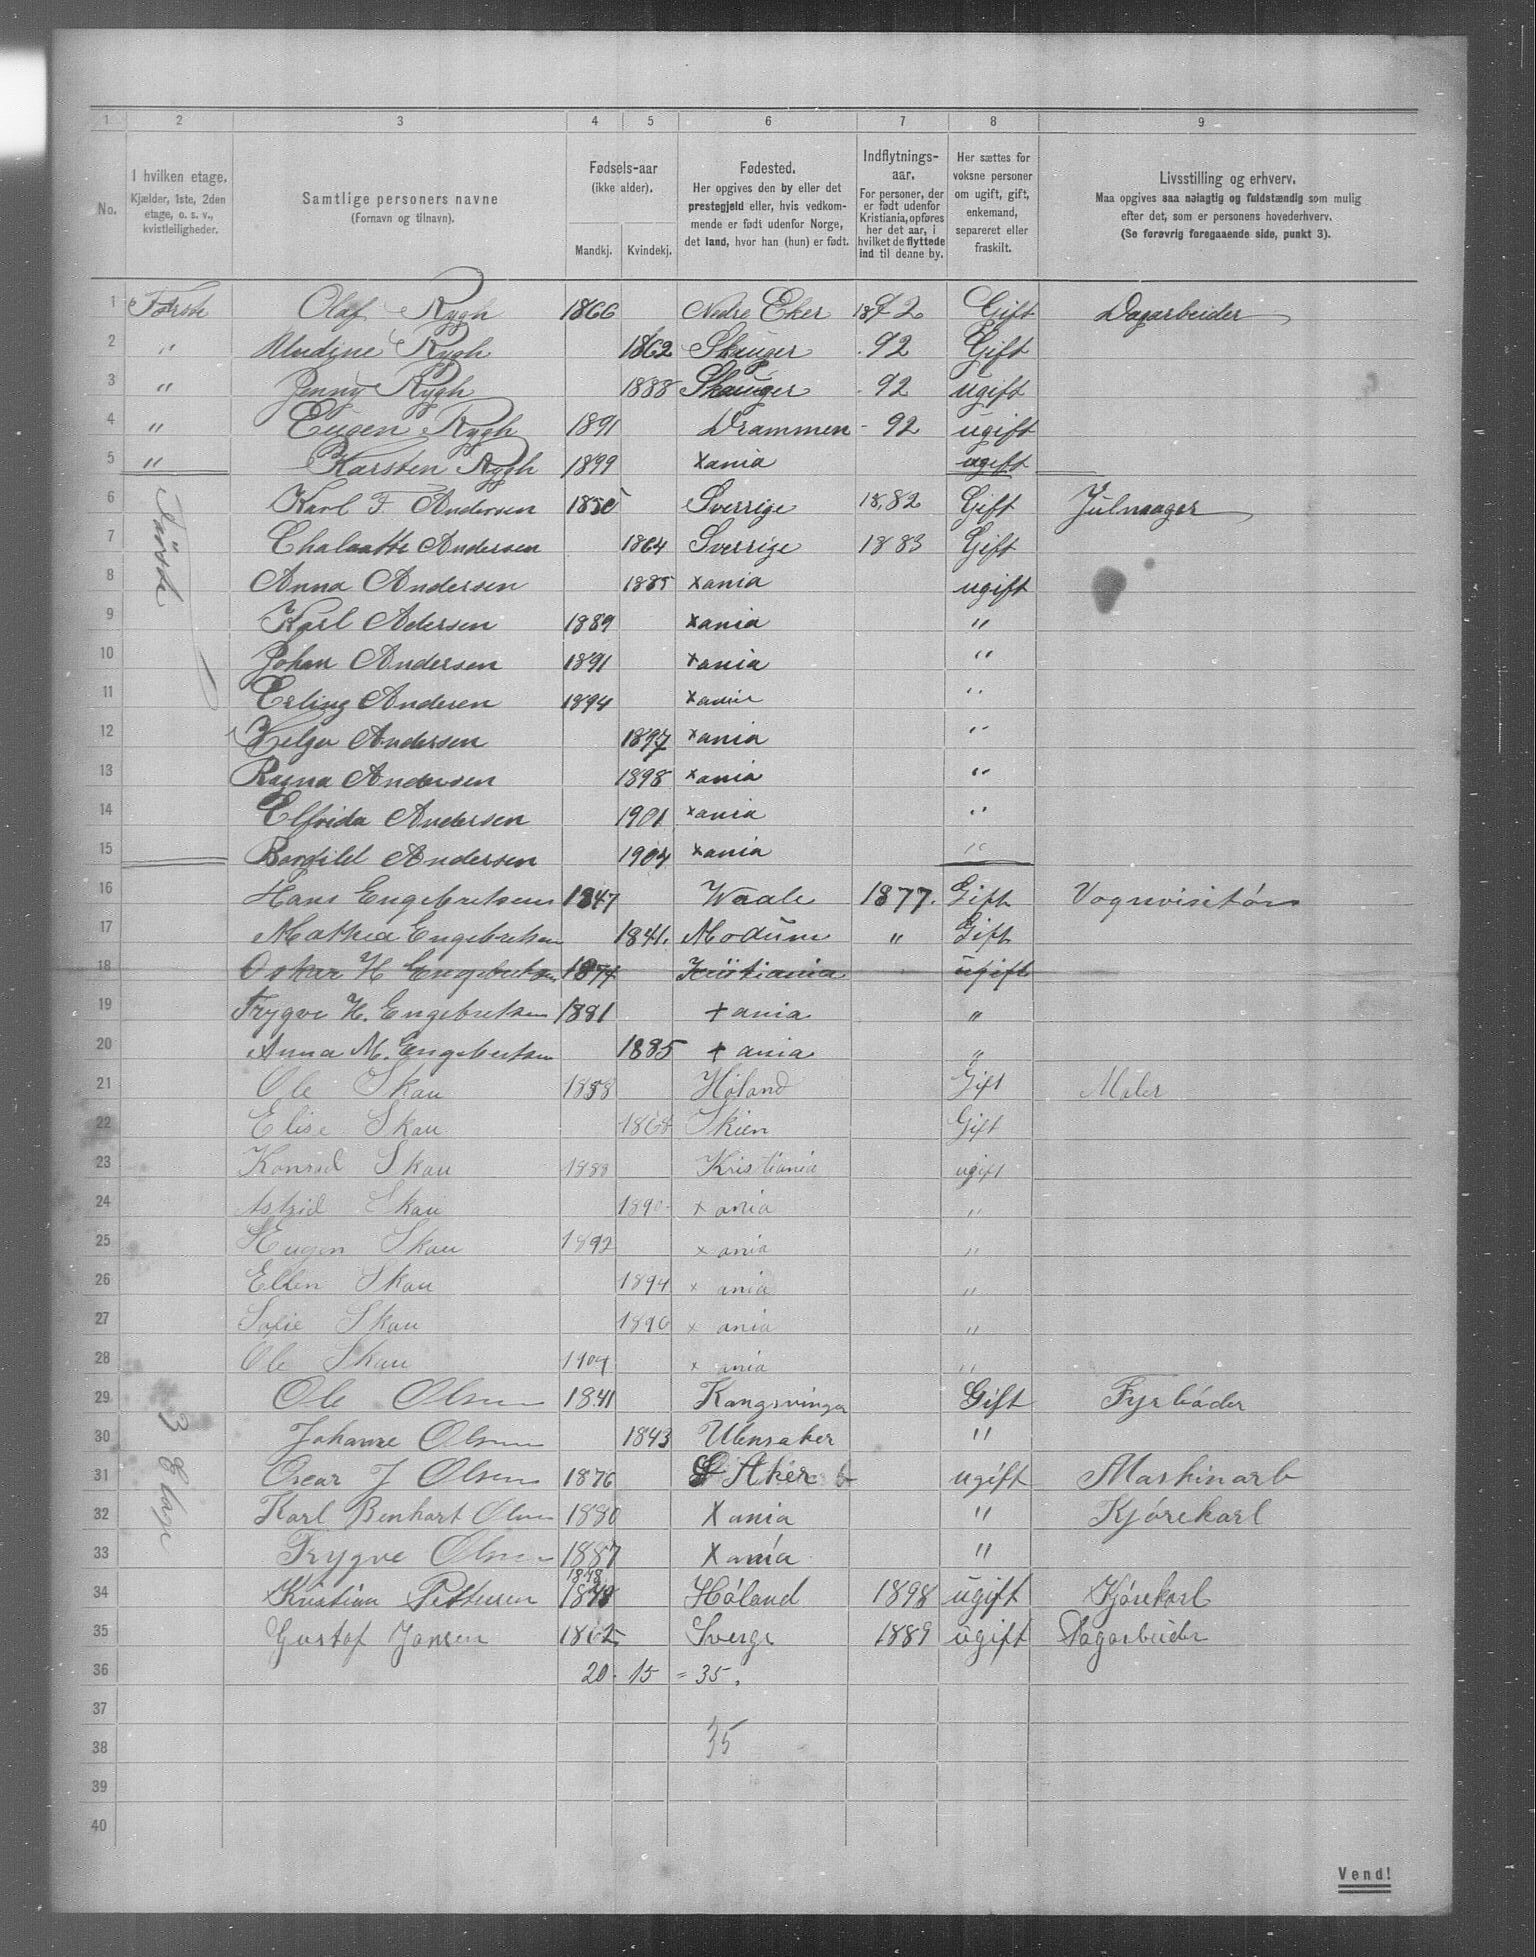 1 2 3 4 5 6 7 8 9
No.
I hvilken etage.
Kjælder, 1ste, 2den
etage, o. s. v.,
kvistleiligheder.
Samtlige personers navne
(Fornavn og tilnavn).
Fødsels-aar
(ikke alder).
Mandkj. Kvindekj.
Fødested.
Her opgives den by eller det
prestegjeld eller, hvis vedkom-
mende er født udenfor Norge,
det land, hvor han (hun) er født.
Indflytnings-
aar.
For personer, der
er født udenfor
Kristiania, opføres
her det aar, i
hvilket de flyttede
ind til denne by.
Her sættes for
voksne personer
om ugift, gift,
enkemand,
separeret eller
fraskilt.
Livsstilling og erhverv.
Maa opgives saa nøiagtig og fuldstændig som mulig
efter det, som er personens hovederhverv.
(Se forøvrig foregaaende side, punkt 3).
1 Første Olaf Rygh 1866 Nedre Eker 1892 Gift Dagarbeider
2 " Rygh 1862 Skauger . 92 Gift
3 " Jenny Rygh 1888 Skauger . 92 ugift
4 " Eugen Rygh 1891 Drammen - 92 ugift
5 " Karsten Rygh 1899 Xania ugift
6 Karl F. Andersen 1850 Sverrige 1882 Gift Julmager
7 Andersen 1864 Sverrige 1883 Gift
8 Anna Andersen 1885 Xania ugift
9 Karl Adersen 1889 Xania "
10 Johan Andersen 1891 Xania "
11 Erling Anderen 1894 Xania "
12 Helga Andersen 1897 Xania "
13 Ragna Andersen 1898 Xania "
14 Elfrida Andersen 1901 Xania "
15 Borgild Andersen 1904 Xania "
16 Hans Engebretsen 1847 Waale 1877. Gift Vognvisitør
17 Mathea Engebretsen 1841. Modum " Gift
18 Oskar H Engebretsen 1874 Kristiania ugift
19 Trygve H. Engebretsen 1881 + ania "
20 Anna M. Engebretsen 1885 + ania "
21 Ole Skau 1858 Høland Gift Maler
22 Elise Skau 1864 Skien Gift
23 Konrad Skau 1888 Kristiania ugift
24 Astrid Skau 1890 x ania "
25 Eugen Skau 1892 x ania "
26 Ellen Skau 1894 x ania "
27 Sofie Skau 1896 x ania "
28 Ole Skau 1904 x ania "
29 3 Etage Ole Olsen 1841 Kongsvinger Gift Fyrbøder
30 Johanne Olsen 1843 Ulensaker "
31 Oscar J Olsen 1876 Aker ugift Maskinarb
32 Karl Benhart Olsen 1880 Xania " Kjørekarl
33 Trygve Olsen 1887 Xania "
34 Kristian Pettersen 1848 Høland 1898 ugift Kjørekarl
35 Gustaf Jansen 1862 Sverge 1889 ugift Dagarbeider
36 20 . 15 = 35.
37
38 35
39
40
Vend!